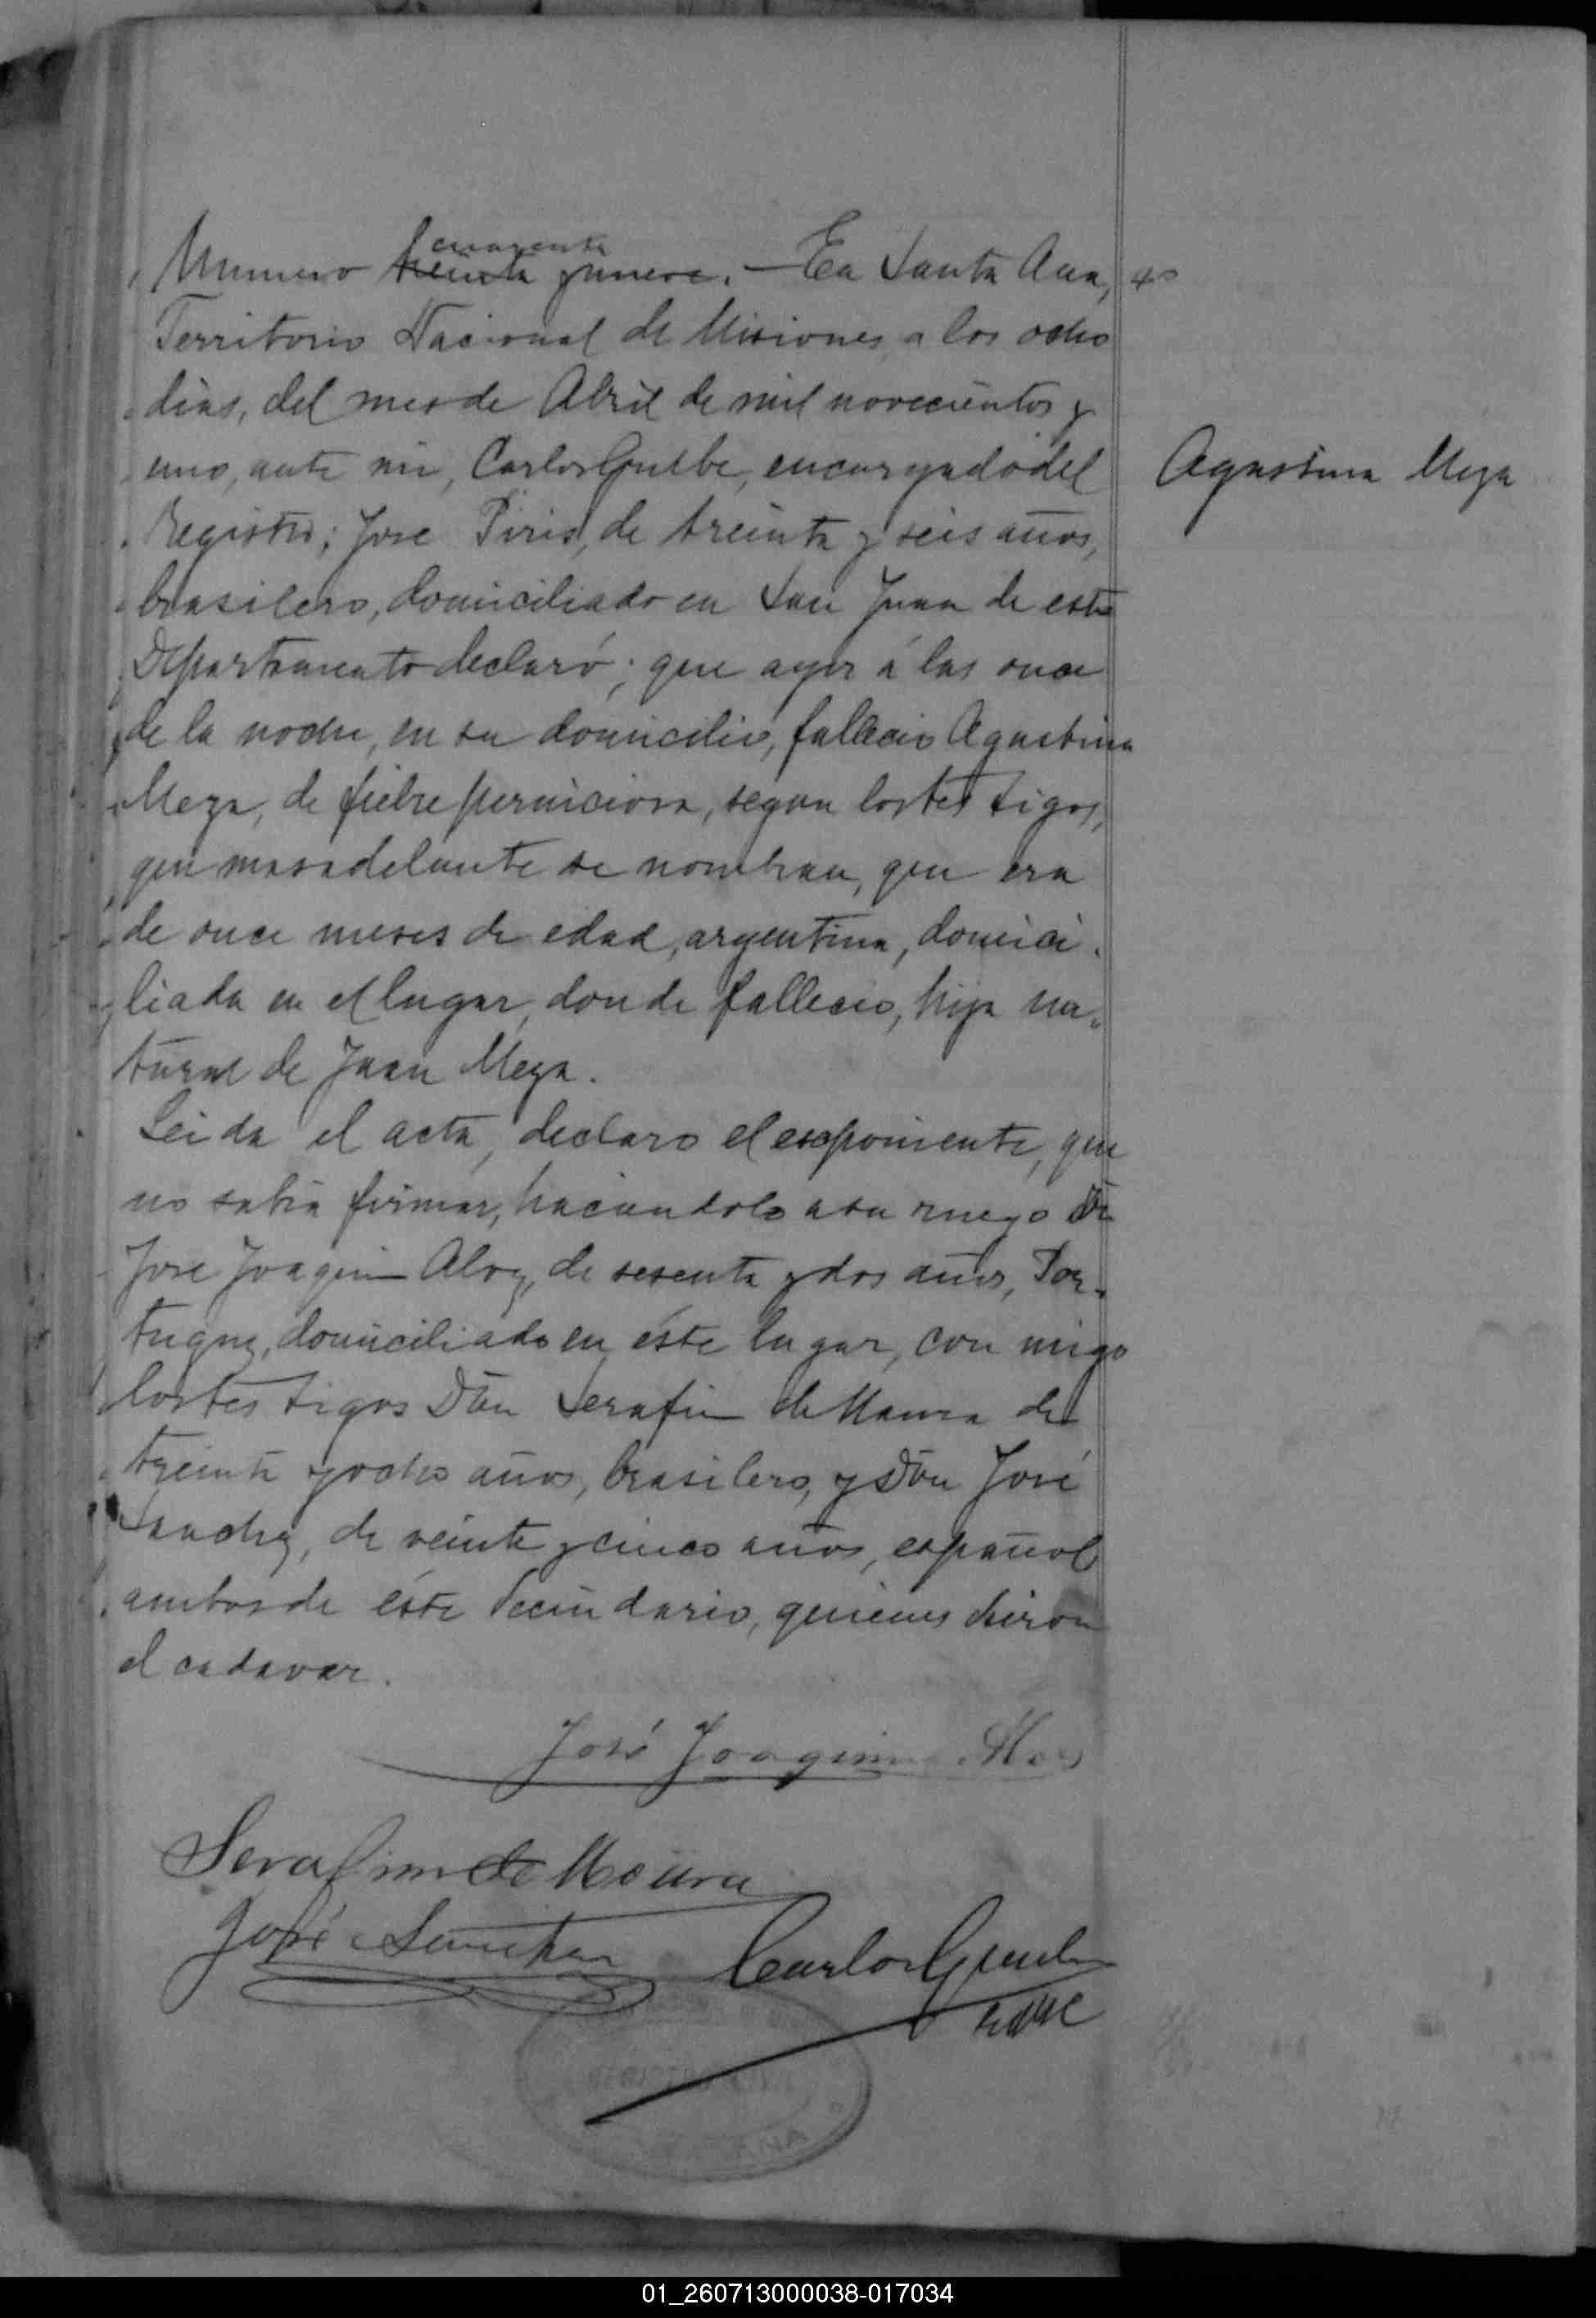 Numero cuarenta treinta y nueve. — En Santa Ana, 40
Territorio Nacional de Misiones, a los ocho
dias, del mes de Abril de mil novecientos y
uno, ante mi, Carlos Gruber, encargado del
Registro; Jose Piris, de treinta y seis años,
brasilero, domiciliado en San Juan de este
Departamento declaró; que ayer á las once
de la noche, en su domicilio, fallecio Agustina
Meza, de fiebre perniciosa, segun los testigos,
que mas adelante se nombran, que era
de once meses de edad, argentina, domici-
liada en el lugar, donde fallecio, hija na-
tural de Juan Meza.
Leida el acta, declaro el esxponiente, que
no sabia firmar, haciendolo a su ruego Dn
Jose Joaquin Alvez, de sesenta y dos años, Por-
tuguez, domiciliado en éste lugar, con migo
los testigos Don Serafin de Maura de
treinta y ocho años, brasilero, y Don José
Sanchez, de veinte y cinco años, español
ambos de éste Vecindario, quienes vieron
el cadaver.
Agustina Meza
José Joaquim Alves
Serafim de Moura
José Sanchez
Carlos Gruber
01_260713000038-017034